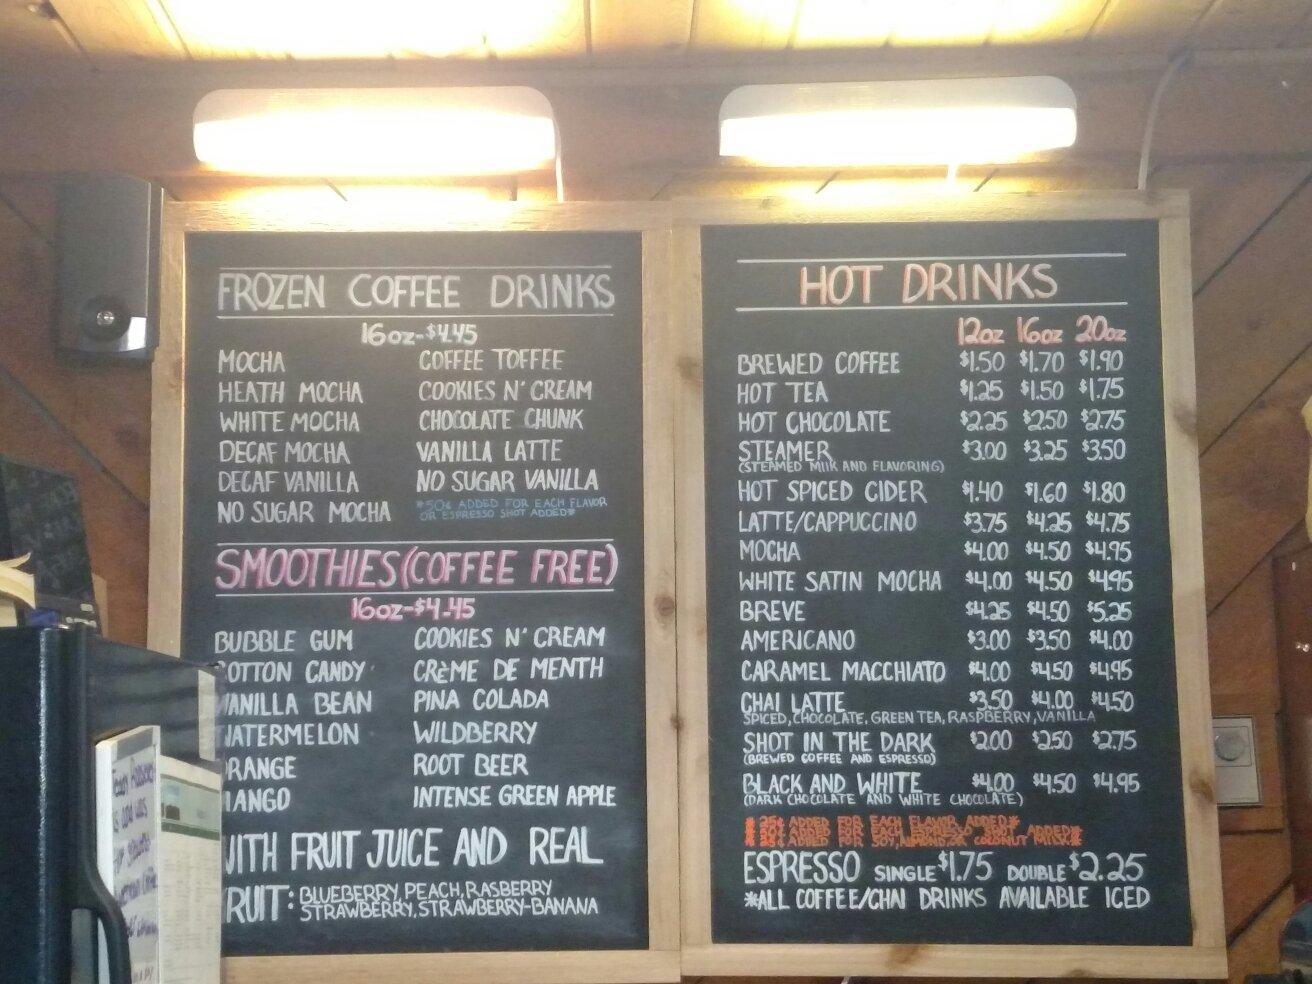 FROZEN COFFEE DRINKS
16oz-$4.45
MOCHA
HEATH MOCHA
WHITE MOCHA
DECAF MOCHA
DECAF VANILLA
NO SUGAR MOCHA
COFFEE TOFFEE
COOKIES N' CREAM
CHOCOLATE CHUNK
VANILLA LATTE
NO SUGAR VANILLA
*50¢ ADDED FOR EACH FLAVOR
OR ESPRESSO SHOT ADDED*
SMOOTHIES (COFFEE FREE)
16oz-$4.45
BUBBLE GUM
COTTON CANDY
VANILLA BEAN
WATERMELON
ORANGE
MANGO
COOKIES N' CREAM
CRÈME DE MENTH
PINA COLADA
WILDBERRY
ROOT BEER
INTENSE GREEN APPLE
WITH FRUIT JUICE AND REAL
FRUIT: BLUEBERRY, PEACH, RASBERRY
STRAWBERRY, STRAWBERRY-BANANA
HOT DRINKS
12oz 16oz 20oz
BREWED COFFEE $1.50 $1.70 $1.90
HOT TEA $1.25 $1.50 $1.75
HOT CHOCOLATE $2.25 $2.50 $2.75
STEAMER $3.00 $3.25 $3.50
(STEAMED MILK AND FLAVORING)
HOT SPICED CIDER $1.40 $1.60 $1.80
LATTE/CAPPUCCINO $3.75 $4.25 $4.75
MOCHA $4.00 $4.50 $4.95
WHITE SATIN MOCHA $4.00 $4.50 $4.95
BREVE $4.25 $4.50 $5.25
AMERICANO $3.00 $3.50 $4.00
CARAMEL MACCHIATO $4.00 $4.50 $4.95
CHAI LATTE $3.50 $4.00 $4.50
SPICED, CHOCOLATE, GREEN TEA, RASPBERRY, VANILLA
SHOT IN THE DARK $2.00 $2.50 $2.75
(BREWED COFFEE AND ESPRESSO)
BLACK AND WHITE $4.00 $4.50 $4.95
(DARK CHOCOLATE AND WHITE CHOCOLATE)
* 25¢ ADDED FOR EACH FLAVOR ADDED*
* 50¢ ADDED FOR EACH ESPRESSO SHOT ADDED*
ADDED FOR SOY, ALMOND, OR COCONUT MILK*
ESPRESSO SINGLE $1.75 DOUBLE $2.25
*ALL COFFEE/CHAI DRINKS AVAILABLE ICED